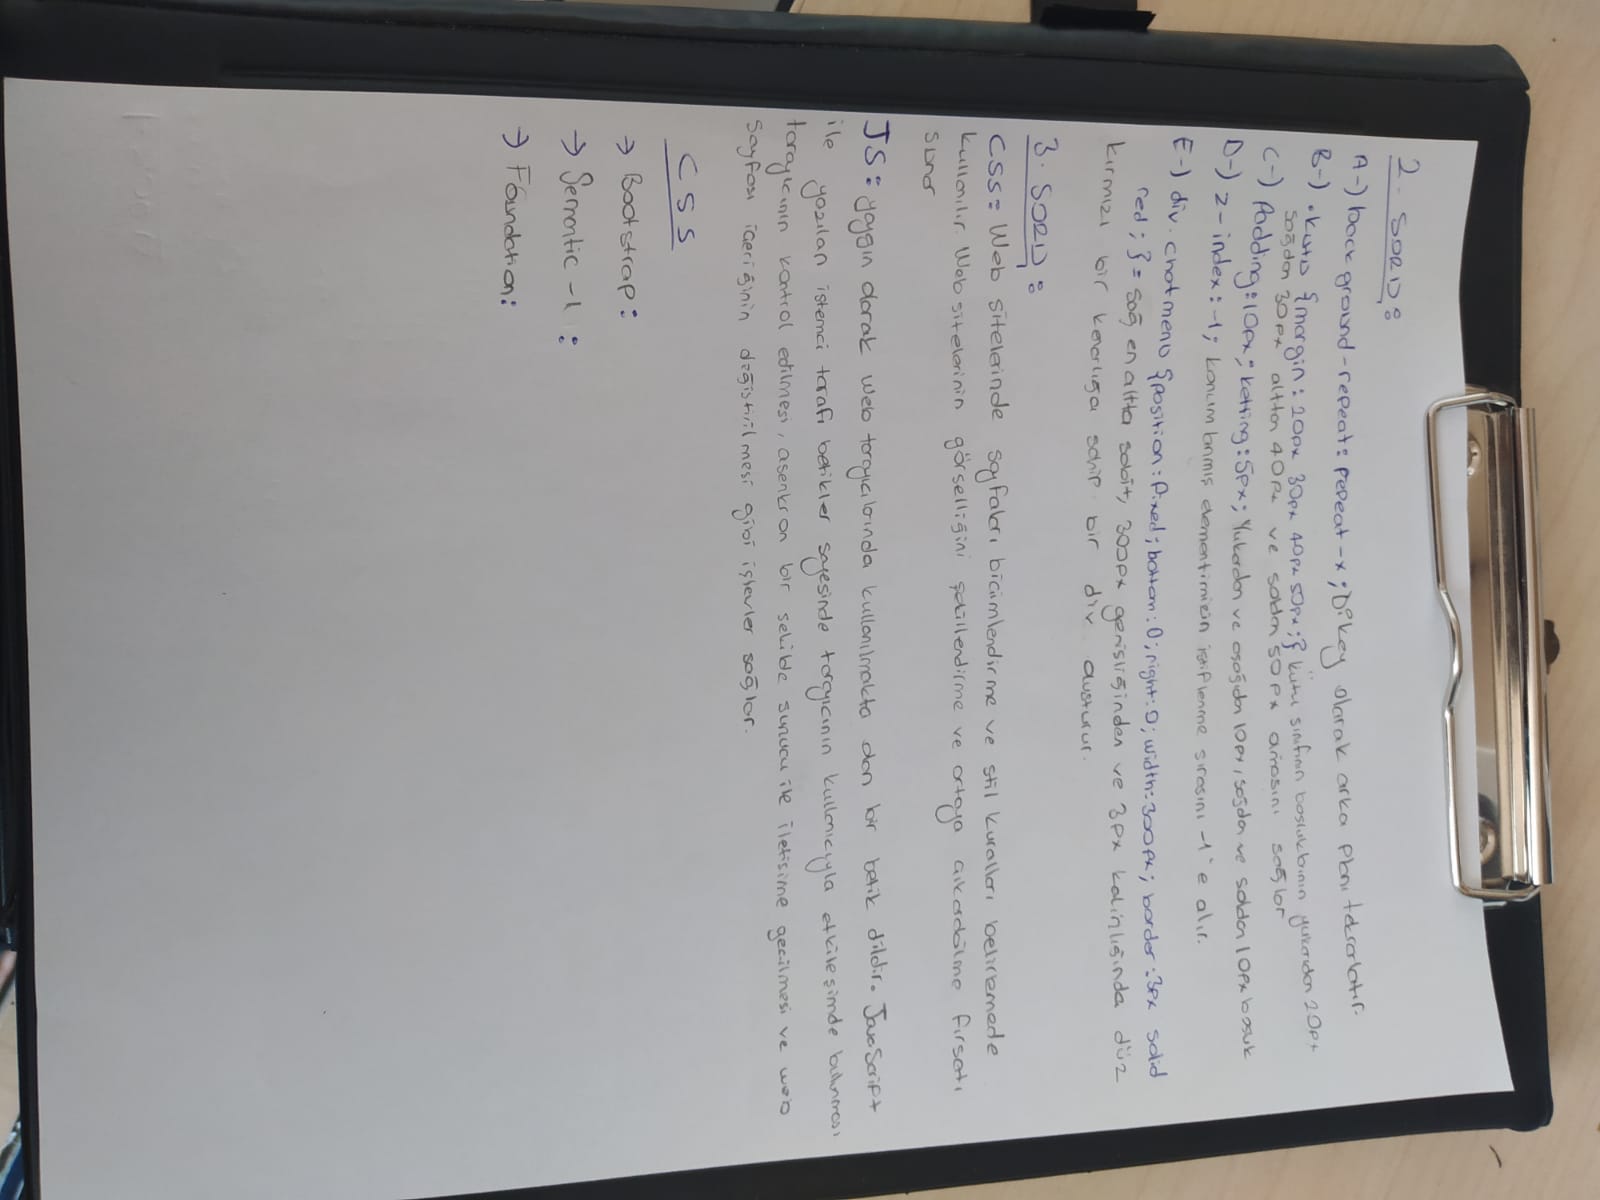 2. SORU:
A-) background-repeat: repeat-x; Dikey olarak arka planı tekrarlatır.
B-) .kutu {margin: 20px 30px 40px 50px;} kutu sınıfının boşluklarının yukarıdan 20px
sağdan 30px alttan 40px ve soldan 50px olmasını sağlar
C-) Padding:10px; ketting:5px; Yukarıdan ve aşağıdan 10px, sağdan ve soldan 10px boşluk
D-) z-index:-1; konumlanmış elementimizin istiflenme sırasını -1'e alır.
E-) div.chatmenu {position:fixed; bottom:0; right:0; width:300px; border:3px solid
red;} = sağ en altta sabit, 300px genişliğinden ve 3px kalınlığında düz
kırmızı bir kenarlığa sahip bir div oluşturur.
3. SORU:
CSS= Web sitelerinde sayfaları biçimlendirme ve stil kuralları belirlemede
kullanılır. Web sitelerinin görselliğini şekillendirme ve ortaya çıkarabilme fırsatı
sunar
JS= yaygın olarak web tarayıcılarında kullanılmakta olan bir betik dildir. JavaScript
ile yazılan istemci tarafı betikler sayesinde tarayıcının kullanıcıyla etkileşimde bulunması
tarayıcının kontrol edilmesi, asenkron bir şekilde sunucu ile iletişime geçilmesi ve web
sayfası içeriğinin değiştirilmesi gibi işlevler sağlar.
CSS
→ Bootstrap:
→ Semantic-ı:
→ Foundation: